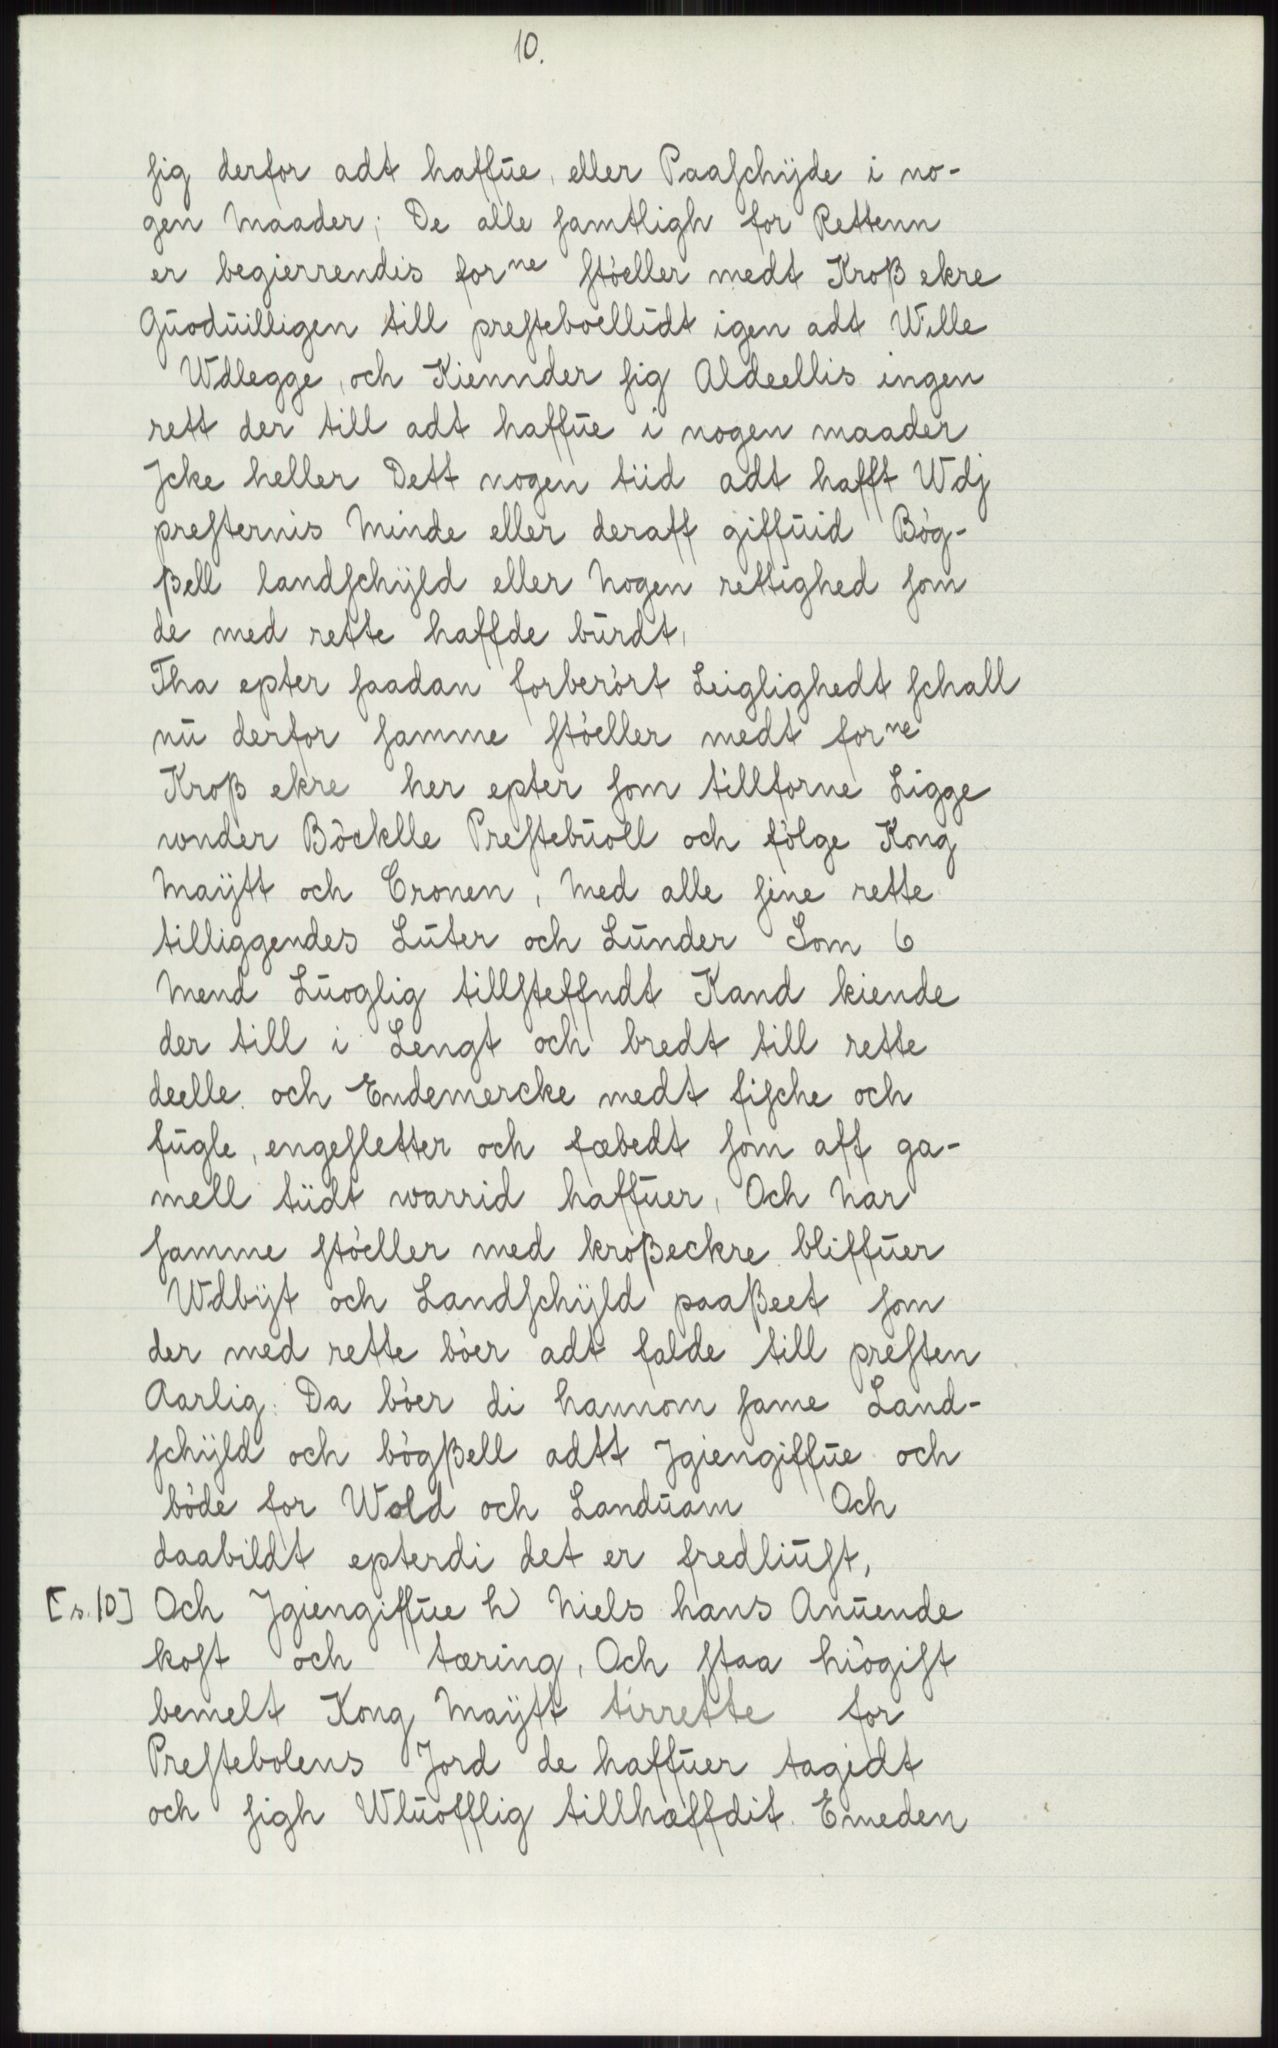 10.
sig derfor adt haffue, eller Paaschÿde i no-
gen maader; De alle samtligh for Rettenn
er begierrendis for<sup>ne</sup> stöeller medt Kroß ekre
Guoduilligen till presteboellidt igen adt Wille
Wdlegge, och Kiennder sig Aldeellis ingen
rett der till adt haffue i nogen maader
Jcke heller Dett nogen tiid adt hafft Wdj
presternis Minde eller deraff giffuid Bög-
ßell landschÿld eller Nogen rettighed som
de med rette haffde burdt,
Tha epter saadan forberört Leiglighedt schall
nu derfor samme stöeller medt for<sup>ne</sup>
Kroß ekre her epter som tillforne Ligge
wnder Böcklle Prestebuoll och fölge Kong
Maÿtt och Cronen, Med alle sine rette
tilliggendes Luter och Lunder Som 6
Mend Luoglig tillsteffndt Kand kiende
der till i Lengt och bredt till rette
deelle och Endemercke medt fische och
fugle, engesletter och fæbedt som aff ga-
mell tiidt warrid haffuer, Och Nar
samme stöeller med kroßeckre bliffuer
Wdbÿt och Landschÿld paaßeet som
der med rette böer adt falde till presten
Aarlig: Da böer di hannom same Land-
schÿld och bögßell adtt Jgiengiffue och
böde for Wold och Landuam Och
daabildt epterdi det er fredliust,
[s. 10] Och Jgiengiffue h Niels hans Anuende
kost och tæring, Och staa hiögist
bemelt Kong Maÿtt tirrette for
Prestebolens Jord de haffuer tagidt
och sigh Wluofflig tillhæffdit. Emeden